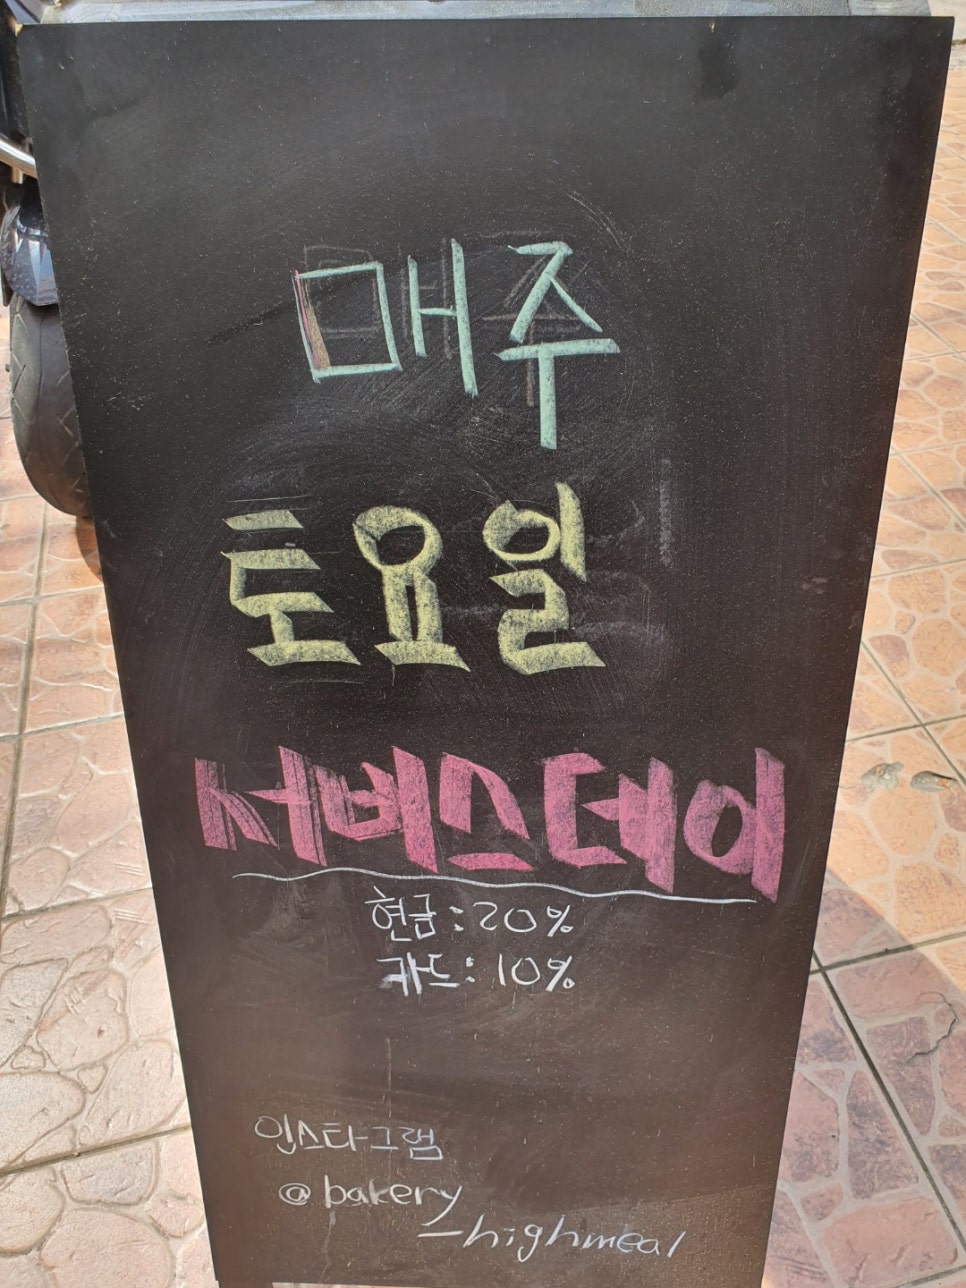 매주
토요일
서비스데이
현금:20%
카드:10%
인스타그램
@bakery
_highmeal